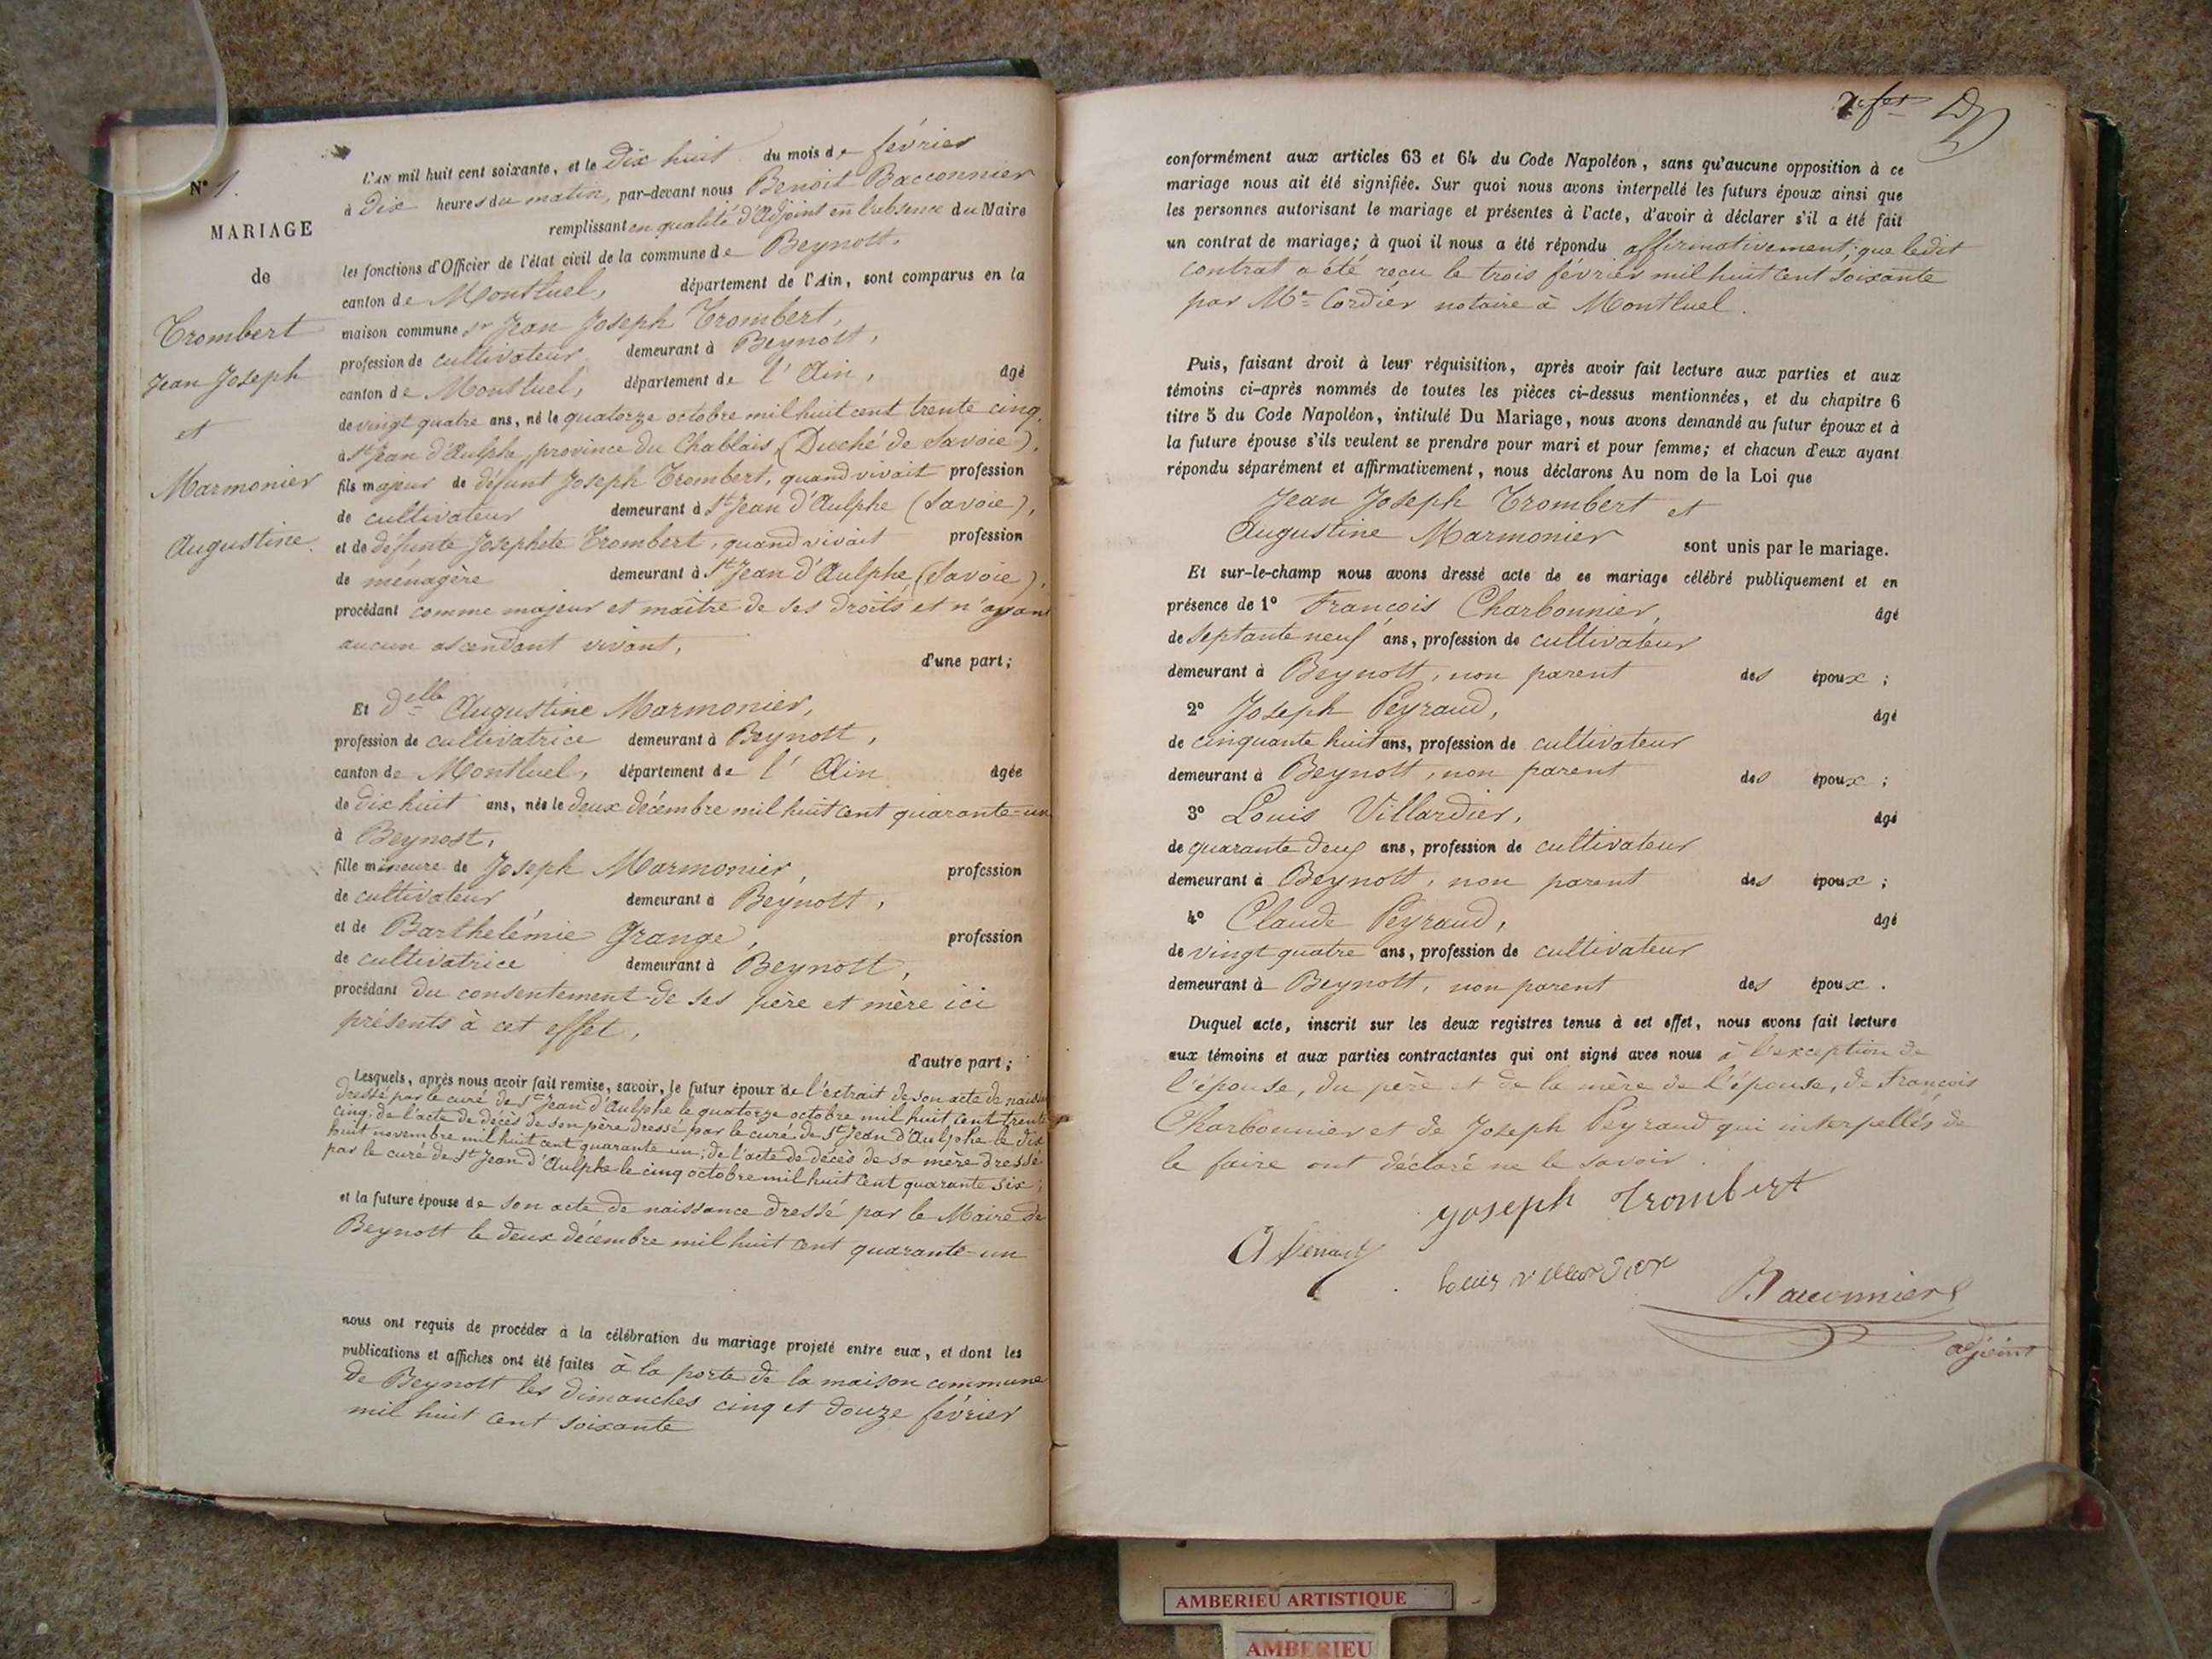 N° 1.
MARIAGE
de
Trombert
Jean Joseph
et
Marmonier
Augustine.
L'AN mil huit cent soixante, et le dix huit du mois de février
à dix heures du matin, par-devant nous Benoit Bacconnier
remplissant en qualité d'adjoint en l'absence du Maire
les fonctions d'Officier de l'état civil de la commune de Beynost.
canton de Montluel, département de l'Ain, sont comparus en la
maison commune sr Jean Joseph Trombert,
profession de cultivateur demeurant à Beynost,
canton de Montluel, département de l'Ain, âgé
de vingt quatre ans, né le quatorze octobre mil huit cent trente cinq,
à St Jean d'Aulphe, province du Chablais, (Duché de Savoie),
fils majeur de défunt Joseph Trombert, quand vivait profession
de cultivateur demeurant à St Jean d'Aulphe (Savoie),
et de défunte Josephete Trombert, quand vivait profession
de ménagère demeurant à St Jean d'Aulphe (Savoie),
procédant comme majeur et maître de ses droits et n'ayant
aucun ascendant vivant,
d'une part;
Et delle Augustine Marmonier,
profession de cultivatrice demeurant à Beynost,
canton de Montluel, département de l'Ain âgée
de dix huit ans, née le deux décembre mil huit cent quarante-un
à Beynost,
fille mineure de Joseph Marmonier, profession
de cultivateur demeurant à Beynost,
et de Barthelémie Grange, profession
de cultivatrice demeurant à Beynost,
procédant du consentement de ses père et mère ici
présents à cet effet,
d'autre part;
Lesquels, après nous avoir fait remise, savoir, le futur époux de l'extrait de son acte de naiss
dressé par le curé de St Jean d'Aulphe le quatorze octobre mil huit cent trente
cinq; de l'acte de décès de son père dressé par le curé de St Jean d'Aulphe le dix
huit novembre mil huit cent quarante un; de l'acte de décès de sa mère dressé
par le curé de St Jean d'Aulphe le cinq octobre mil huit cent quarante six;
et la future épouse de son acte de naissance dressé par le Maire de
Beynost le deux décembre mil huit cent quarante-un
nous ont requis de procéder à la célébration du mariage projeté entre eux, et dont les
publications et affiches ont été faites à la porte de la maison commune
de Beynost les dimanches cinq et douze février
mil huit cent soixante
conformément aux articles 63 et 64 du Code Napoléon, sans qu'aucune opposition à ce
mariage nous ait été signifiée. Sur quoi nous avons interpellé les futurs époux ainsi que
les personnes autorisant le mariage et présentes à l'acte, d'avoir à déclarer s'il a été fait
un contrat de mariage; à quoi il nous a été répondu affirmativement; que ledit
contrat a été reçu le trois février mil huit cent soixante
par Me Cordier notaire à Montluel.
Puis, faisant droit à leur réquisition, après avoir fait lecture aux parties et aux
témoins ci-après nommés de toutes les pièces ci-dessus mentionnées, et du chapitre 6
titre 5 du Code Napoléon, intitulé Du Mariage, nous avons demandé au futur époux et à
la future épouse s'ils veulent se prendre pour mari et pour femme; et chacun d'eux ayant
répondu séparément et affirmativement, nous déclarons Au nom de la Loi que
Jean Joseph Trombert et
Augustine Marmonier sont unis par le mariage.
Et sur-le-champ nous avons dressé acte de ce mariage célébré publiquement et en
présence de 1° François Charbonnier, âgé
de septante neuf ans, profession de cultivateur
demeurant à Beynost, non parent des époux;
2° Joseph Peyraud, âgé
de cinquante huit ans, profession de cultivateur
demeurant à Beynost, non parent des époux;
3° Louis Villardier, âgé
de quarante deux ans, profession de cultivateur
demeurant à Beynost, non parent des époux;
4° Claude Peyraud, âgé
de vingt quatre ans, profession de cultivateur
demeurant à Beynost, non parent des époux.
Duquel acte, inscrit sur les deux registres tenus à cet effet, nous avons fait lecture
aux témoins et aux parties contractantes qui ont signé avec nous à l'exception de
l'épouse, du père et de la mère de l'épouse, de François
Charbonnier et de Joseph Peyraud qui interpellés de
le faire ont déclaré ne le savoir.
Joseph Trombert
Louis villardier
Bacconnier
adjoint
AMBERIEU ARTISTIQUE
AMBERIEU